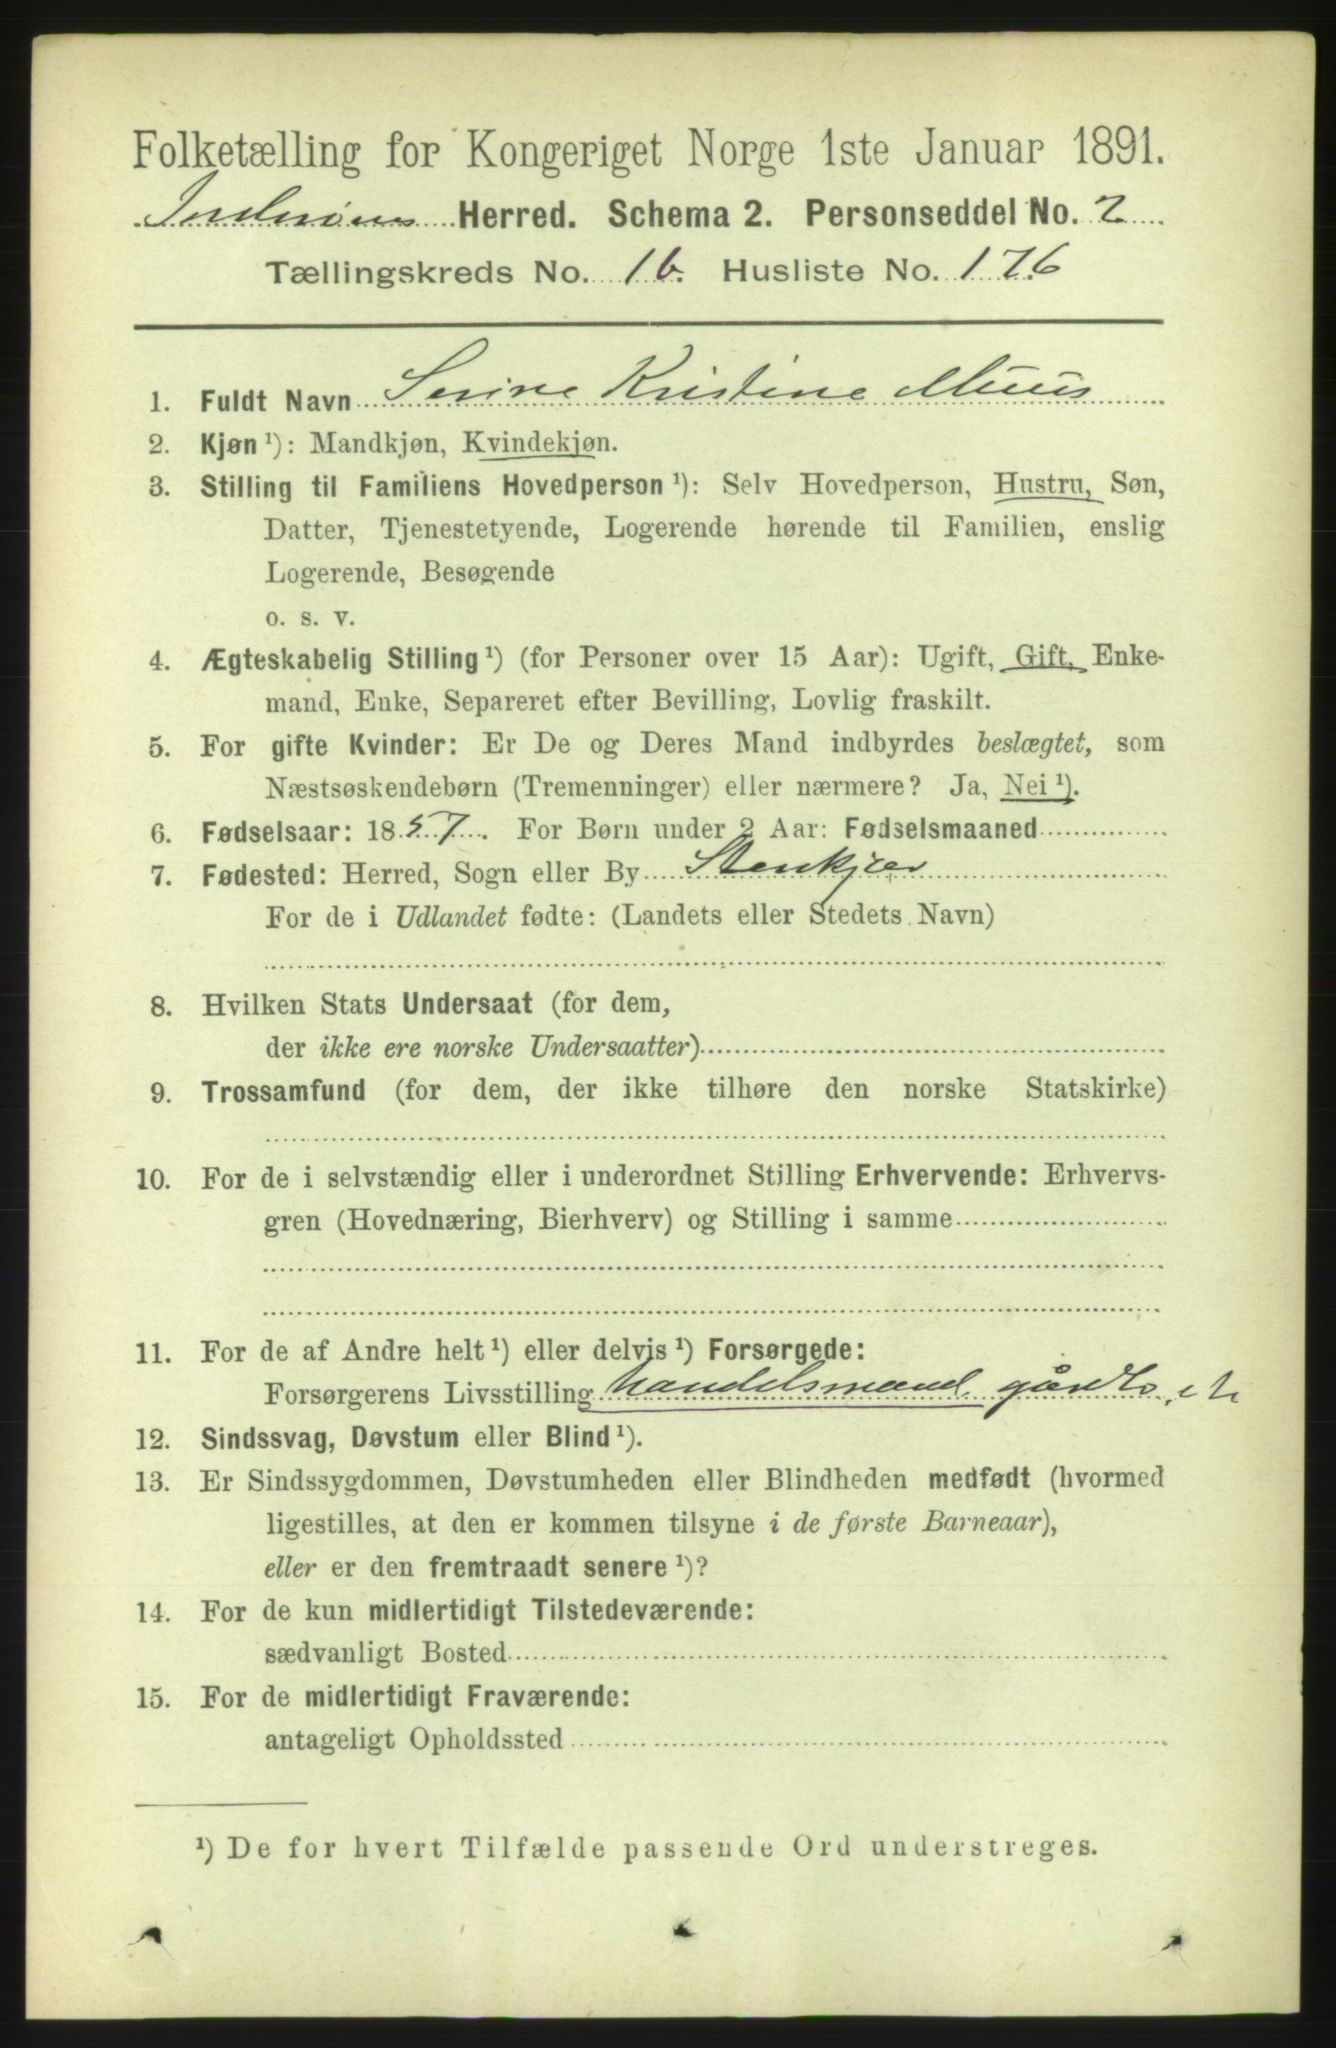 Folketælling for Kongeriget Norge 1ste Januar 1891.
Inderøens Herred. Schema 2. Personseddel No. 2
Tællingskreds No. 16. Husliste No. 176
1. Fuldt Navn Serine Kristine Muus
2. Kjøn ¹): Mandkjøn, Kvindekjøn.
3. Stilling til Familiens Hovedperson ¹): Selv Hovedperson, Hustru, Søn,
Datter, Tjenestetyende, Logerende hørende til Familien, enslig
Logerende, Besøgende
o. s. v.
4. Ægteskabelig Stilling ¹) (for Personer over 15 Aar): Ugift, Gift, Enke-
mand, Enke, Separeret efter Bevilling, Lovlig fraskilt.
5. For gifte Kvinder: Er De og Deres Mand indbyrdes beslægtet, som
Næstsøskendebørn (Tremenninger) eller nærmere? Ja, Nei ¹).
6. Fødselsaar: 1857. For Børn under 2 Aar: Fødselsmaaned
7. Fødested: Herred, Sogn eller By Stenkjær
For de i Udlandet fødte: (Landets eller Stedets Navn)
8. Hvilken Stats Undersaat (for dem,
der ikke ere norske Undersaatter)
9. Trossamfund (for dem, der ikke tilhøre den norske Statskirke)
10. For de i selvstændig eller i underordnet Stilling Erhvervende: Erhvervs-
gren (Hovednæring, Bierhverv) og Stilling i samme
11. For de af Andre helt ¹) eller delvis ¹) Forsørgede:
Forsørgerens Livsstilling handelsmand
12. Sindssvag, Døvstum eller Blind ¹).
13. Er Sindssygdommen, Døvstumheden eller Blindheden medfødt (hvormed
ligestilles, at den er kommen tilsyne i de første Barneaar),
eller er den fremtraadt senere ¹)?
14. For de kun midlertidigt Tilstedeværende:
sædvanligt Bosted
15. For de midlertidigt Fraværende:
antageligt Opholdssted
¹) De for hvert Tilfælde passende Ord understreges.